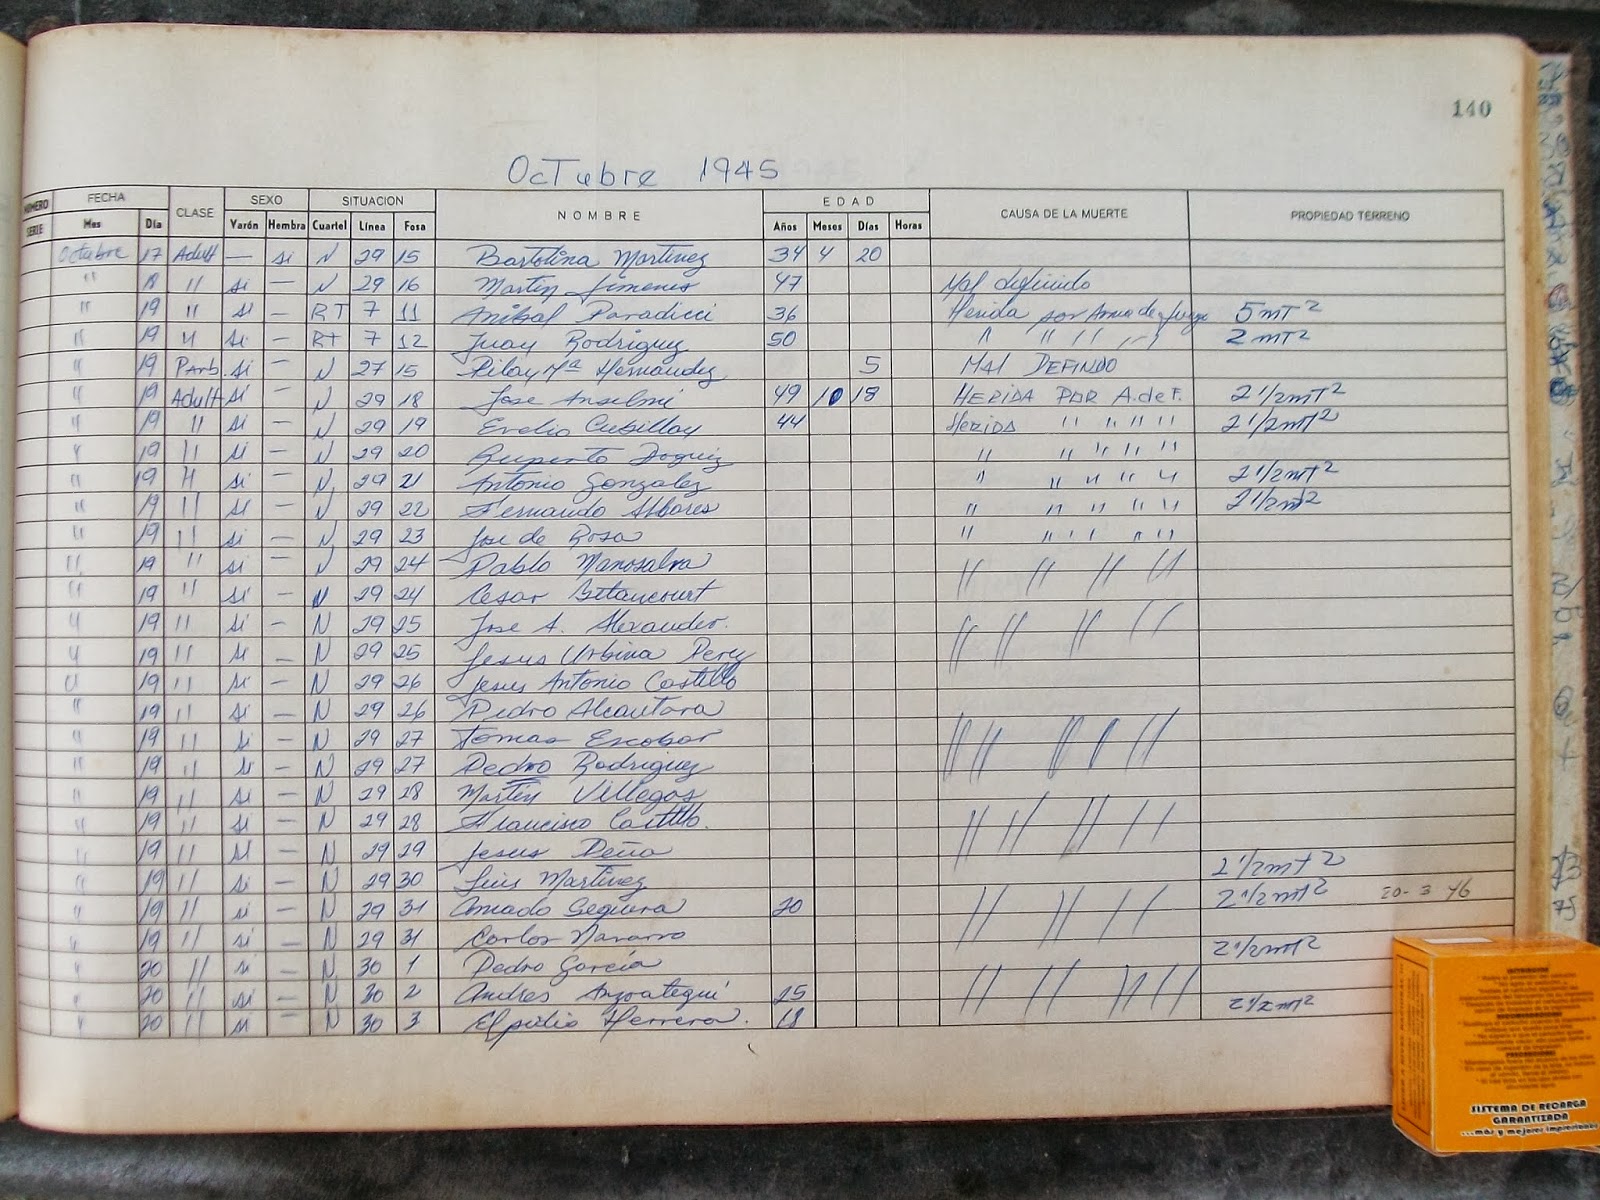 140
Octubre 1945
NUMERO SERIE FECHA CLASE SEXO SITUACION NOMBRE EDAD CAUSA DE LA MUERTE PROPIEDAD TERRENO
Mes Día Varón Hembra Cuartel Línea Fosa Años Meses Días Horas
Octubre 17 Adult — si N 29 15 Bartolina Martinez 34 4 20
" " si — N 29 16 Martin Jimenes 47 Mal definido
" 19 " si — RT 7 11 Anibal Paradicci 36 Herida por Arma de fuego 5 mT2
" 19 " si — RT 7 12 Juan Rodriguez 50 " " " " " 2 mT2
" 19 Parb. si — N 27 15 Pilar Mª Hernandez 5 MAL DEFINDO
" 19 Adult si — N 29 18 Jose Anselmi 49 10 18 HERIDA POR A. de F. 2 1/2 mT2
" 19 " si — N 29 19 Evelio Cubillan 44 HERIDA " " " " 2 1/2 mT2
" 19 " si — N 29 20 Ruperto " " " " "
" 19 " si — N 29 21 Antonio Gonzalez " " " " " 2 1/2 mT2
" 19 " si — N 29 22 Fernando " " " " " 2 1/2 mT2
" 19 " si — N 29 23 Jose de Rosa " " " " "
" 19 " si — N 29 24 Pablo Manosalva " " " "
" 19 " si — N 29 24 Cesar Betancourt
" 19 " si — N 29 25 Jose A. Alexander. " " " "
" 19 " si — N 29 25 Jesus Urbina Perez
" 19 " si — N 29 26 Jesus Antonio Castillo
" 19 " si — N 29 26 Pedro Alcantara
" 19 " si — N 29 27 Tomas Escobar " " " " "
" 19 " si — N 29 27 Pedro Rodriguez
" 19 " si — N 29 28 Martin Villegas
" 19 " si — N 29 28 Francisco Castillo. " " " " "
" 19 " si — N 29 29 Jesus Peña
" 19 " si — N 29 30 Luis Martinez 2 1/2 mt2
" 19 " si — N 29 31 Amado Sequera 20 " " " " 2 1/2 mt2 20-3 46
" 19 " si — N 29 31 Carlos Navarro
" 20 " si — N 30 1 Pedro Garcia 2 1/2 mt2
" 20 " si — N 30 2 Andres Anzoategui 25 " " " " "
" 20 " si — N 30 3 Elpidio Herrera. 18 2 1/2 mt2
INTRODUCCION
RECOMENDACIONES
PRECAUCIONES
SISTEMA DE RECARGA
GARANTIZADA
...más y mejores impresiones